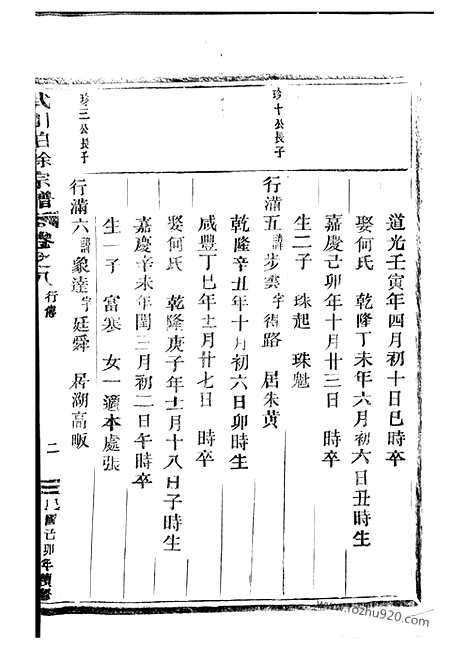 道光壬寅年四月初十日巳時卒
娶何氏 乾隆丁未年六月初六日丑時生
嘉慶己卯年十月廿三日 時卒
生二子 珠起 珠魁
珍十公長子
行滿五諱步雲字衢路 居朱黃
乾隆辛丑年十月初六日卯時生
咸豐丁巳年十二月廿七日 時卒
娶何氏 乾隆庚子年十二月十八日子時生
嘉慶辛未年閏三月初二日午時卒
生一子 富寒 女一適本處張
珍三公長子
行滿六諱象達字廷舜 居湖高畈
徐宗譜 卷之八 行傳 二 民國己卯年續修
www.fozhu79.com